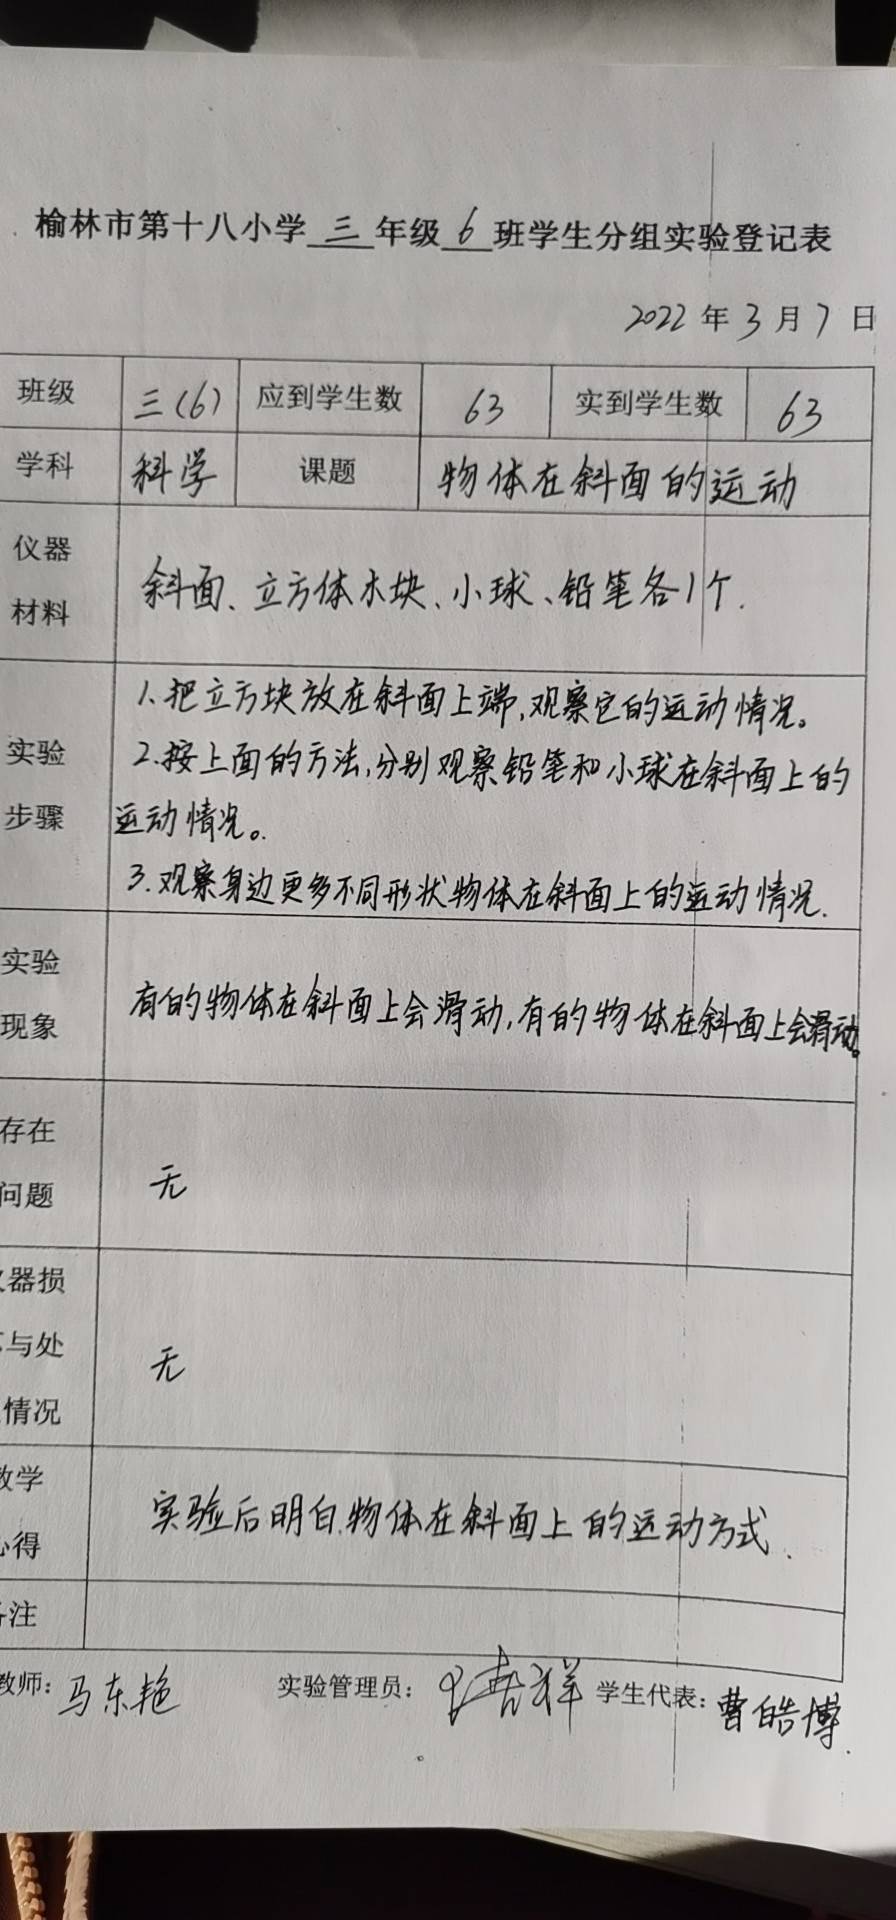 榆林市第十八小学三年级6班学生分组实验登记表
2022年3月7日
班级 三(6) 应到学生数 63 实到学生数 63
学科 科学 课题 物体在斜面的运动
仪器
材料
斜面、立方体木块、小球、铅笔各1个.
实验
步骤
1.把立方块放在斜面上端,观察它的运动情况。
2.按上面的方法,分别观察铅笔和小球在斜面上的
运动情况。
3.观察身边更多不同形状物体在斜面上的运动情况.
实验
现象
有的物体在斜面上会滑动,有的物体在斜面上会滑动。
存在
问题
无
器损
与处
情况
无
教学
心得
实验后明白物体在斜面上的运动方式.
注
教师: 马东艳 实验管理员: 学生代表: 曹皓博.